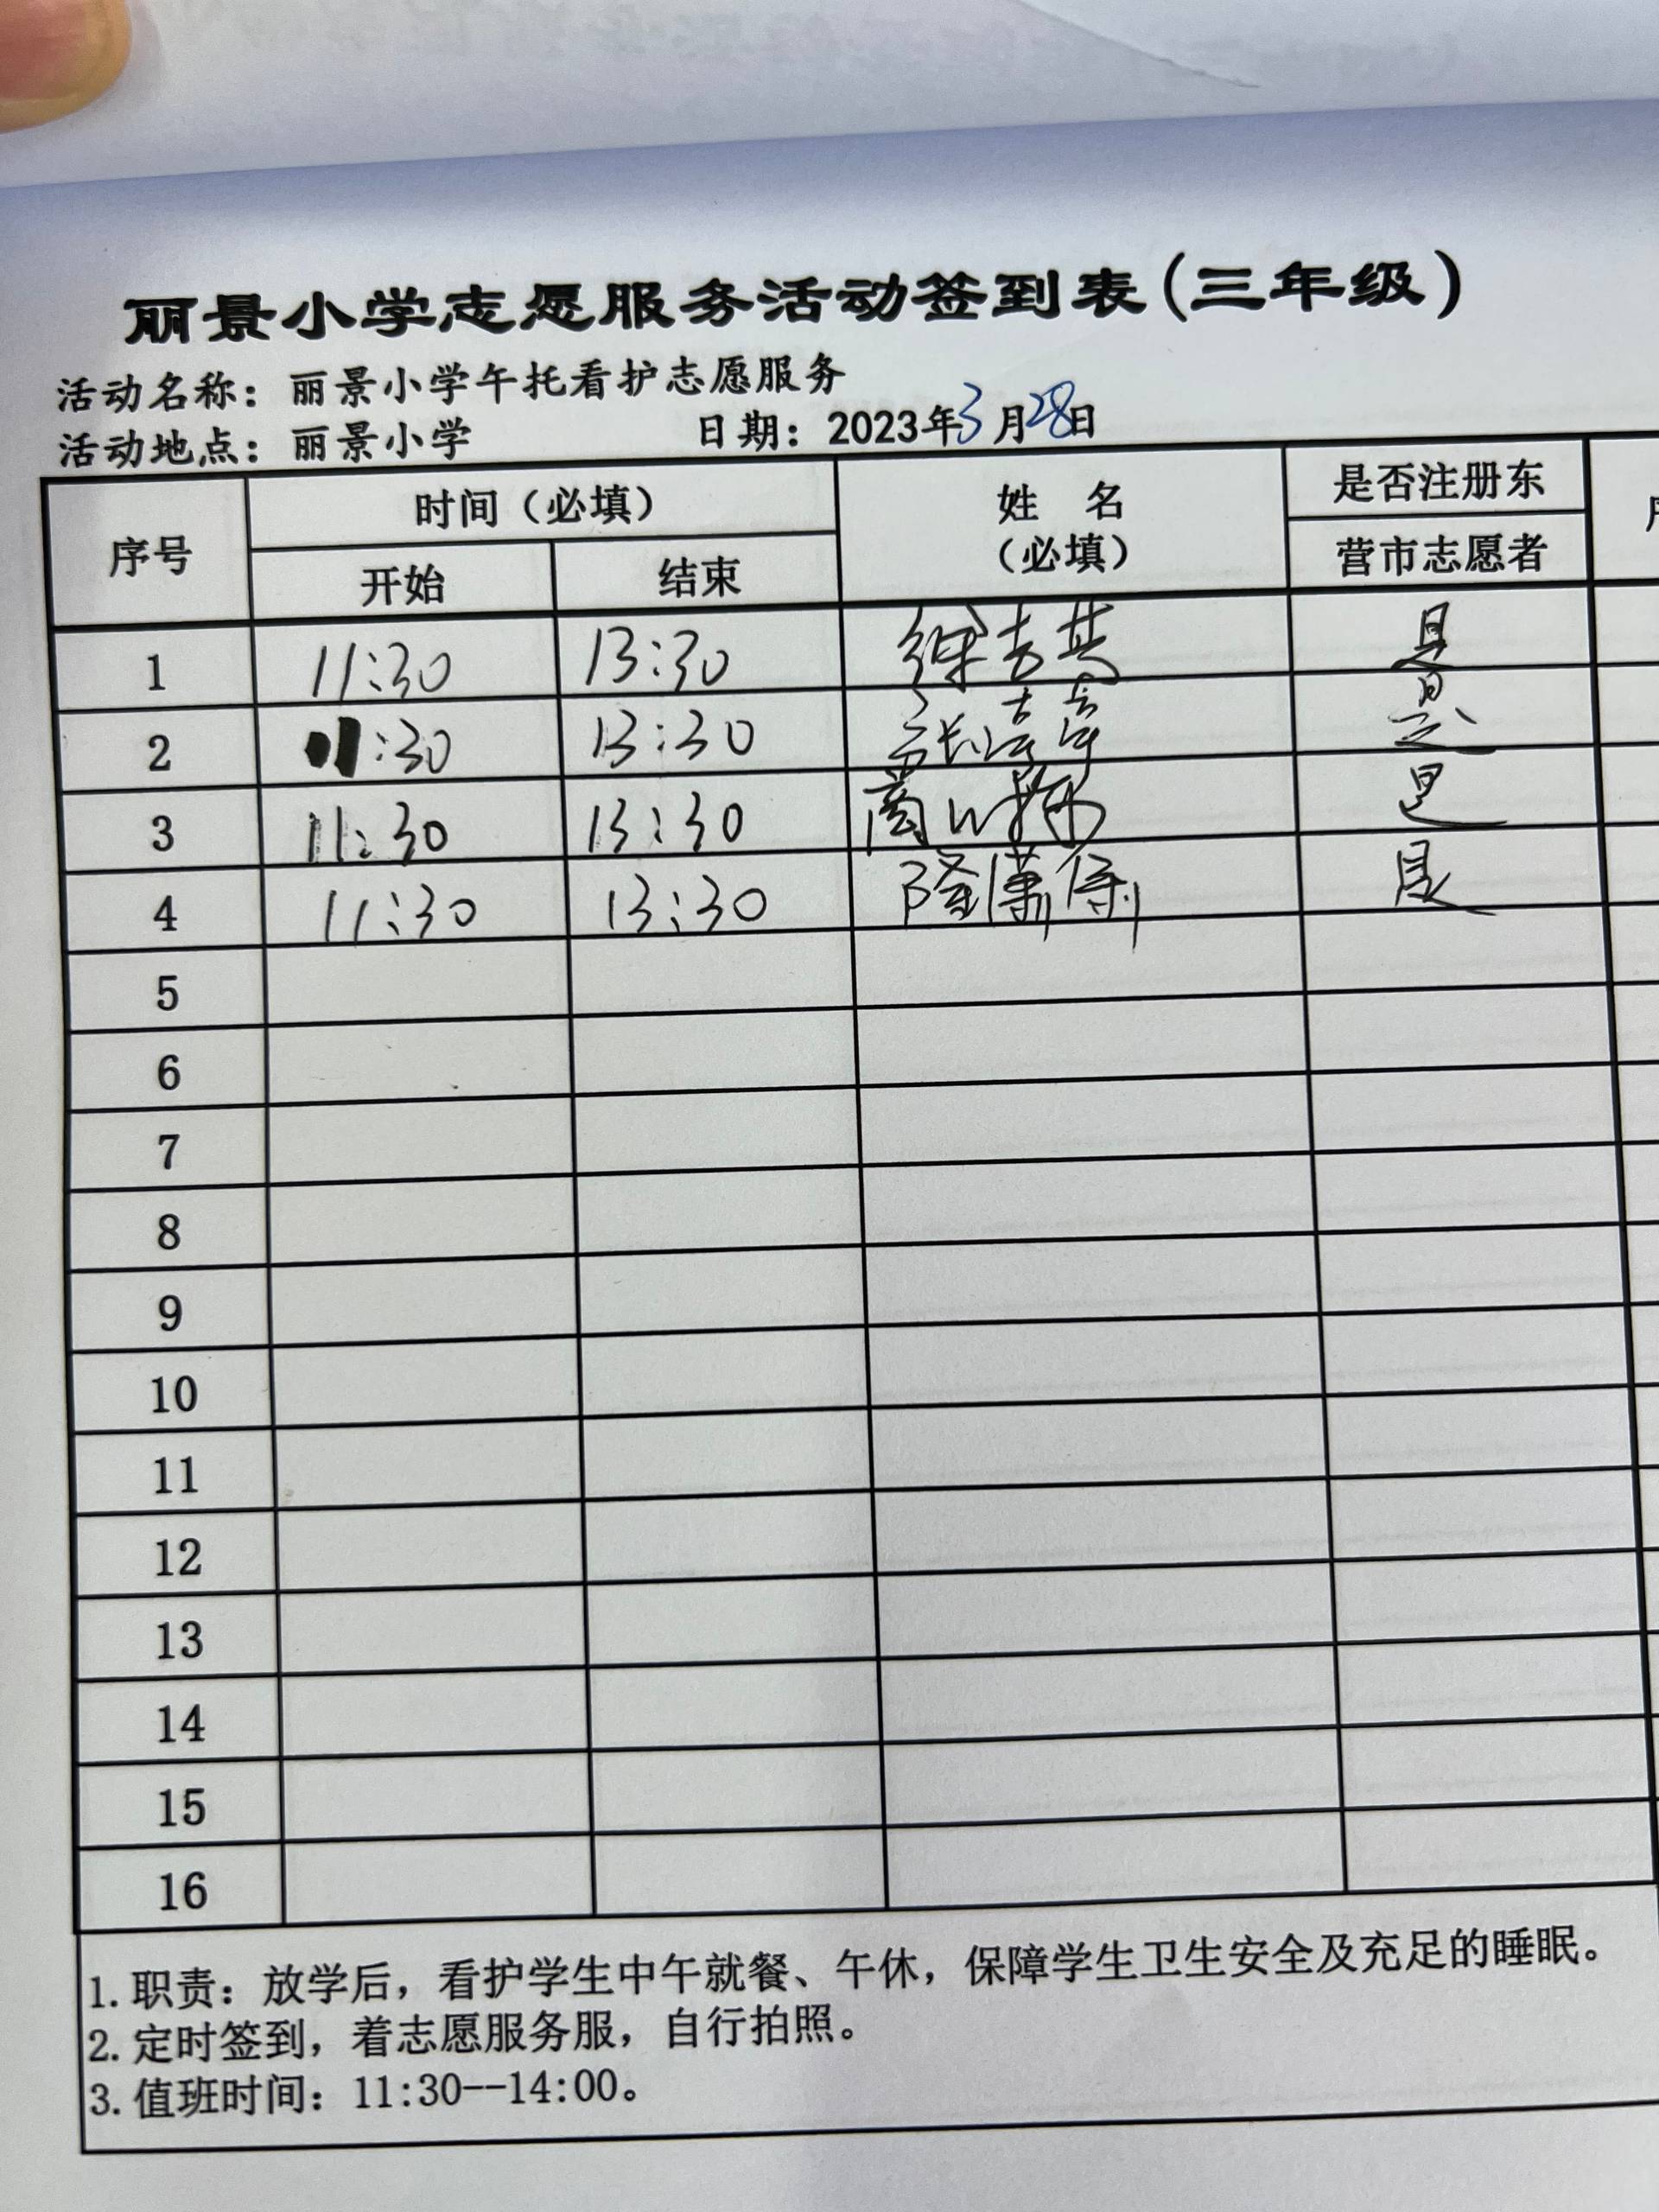 丽景小学志愿服务活动签到表(三年级)
活动名称：丽景小学午托看护志愿服务
活动地点：丽景小学 日期：2023年3月28日
序号 时间（必填） 姓 名 （必填） 是否注册东
开始 结束 营市志愿者
1 11:30 13:30 徐吉芸 是
2 11:30 13:30 是
3 11:30 13:30 是
4 11:30 13:30 是
5
6
7
8
9
10
11
12
13
14
15
16
1. 职责：放学后，看护学生中午就餐、午休，保障学生卫生安全及充足的睡眠。
2. 定时签到，着志愿服务服，自行拍照。
3. 值班时间：11:30--14:00。